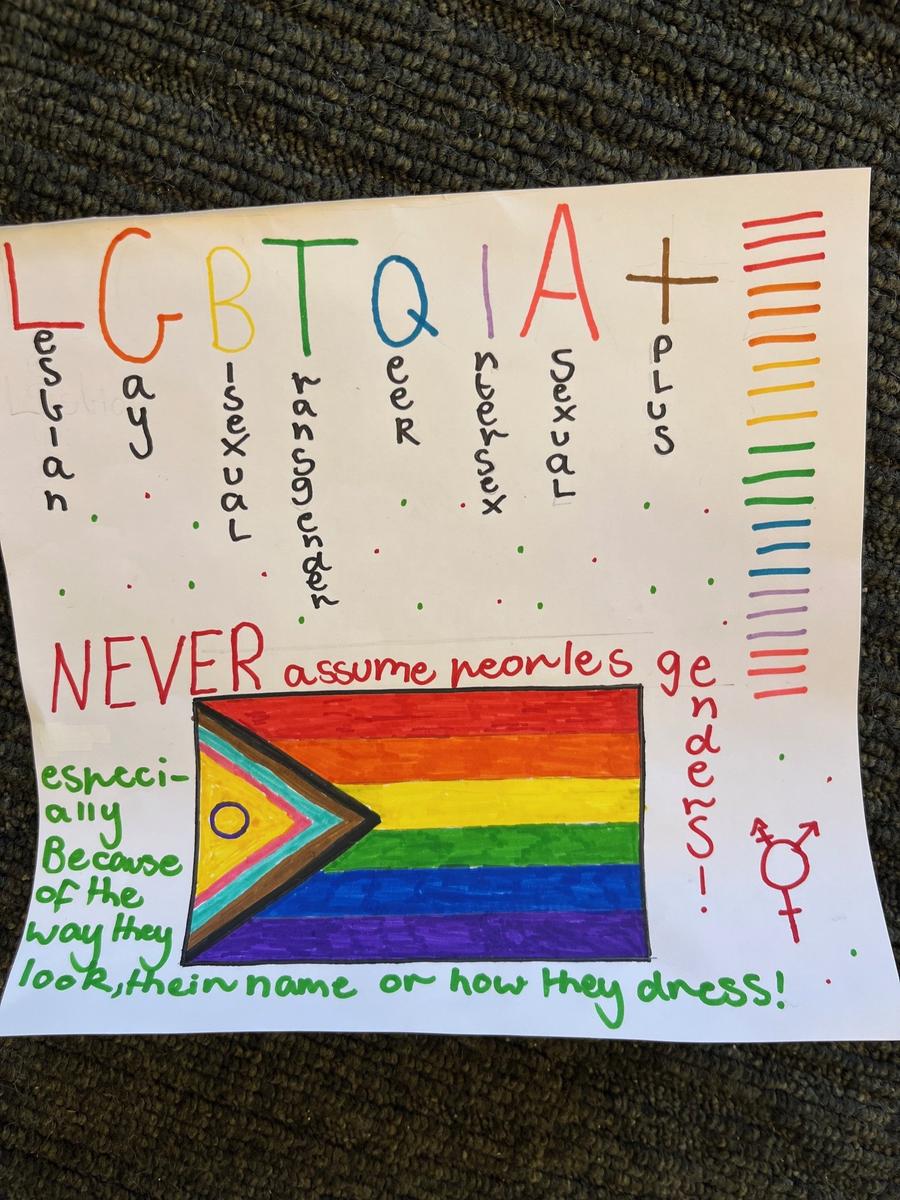 Lesbian
Gay
BIsexuaL
Transgender
QeeR
Intersex
AsexuaL
+ pLus
NEVER assume peoples genders!
especi-
ally
Because
of the
way they
look, their name or how they dress!